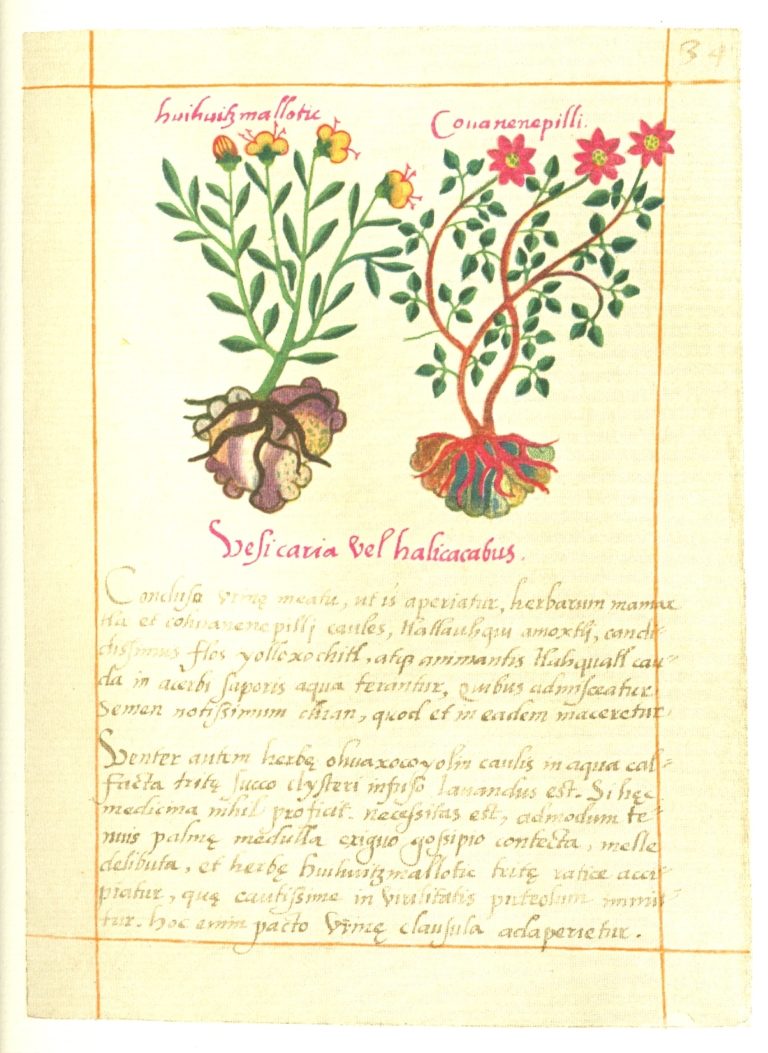 34
huihuitzmallotic
Couanenepilli.
Vesicaria vel halicacabus.
Concluso vrinę meatu, ut is aperiatur, herbarum mamax=
tla et cohuanenepilli caules, tlatlauhqui amoxtli, candi=
dissimus flos yolloxochitl, atqꝫ animantis tlalquatl cau=
da in acerbi saporis aqua terantur, quibus admisceatur
Semen notissimum chian, quod et in eadem maceretur.
Venter autem herbę ohuaxocoyolin caulis in aqua cal=
facta tritę succo clysteri infuso lavandus est. Si hęc
medicina nihil proficit. necessitas est, admodum te=
nuis palmę medulla exiguo gossipio contecta, melle
delibuta, et herbę huihuitzmallotic tritę radice acci=
piatur, quę cautissime in virilitatis puteolum immit=
tur. hoc enim pacto vrinę clausula adaperietur.